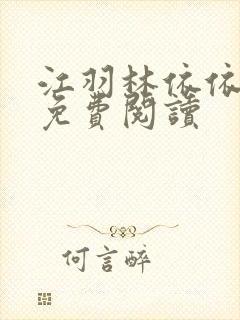 江羽林依依
免費閱讀
何言醉